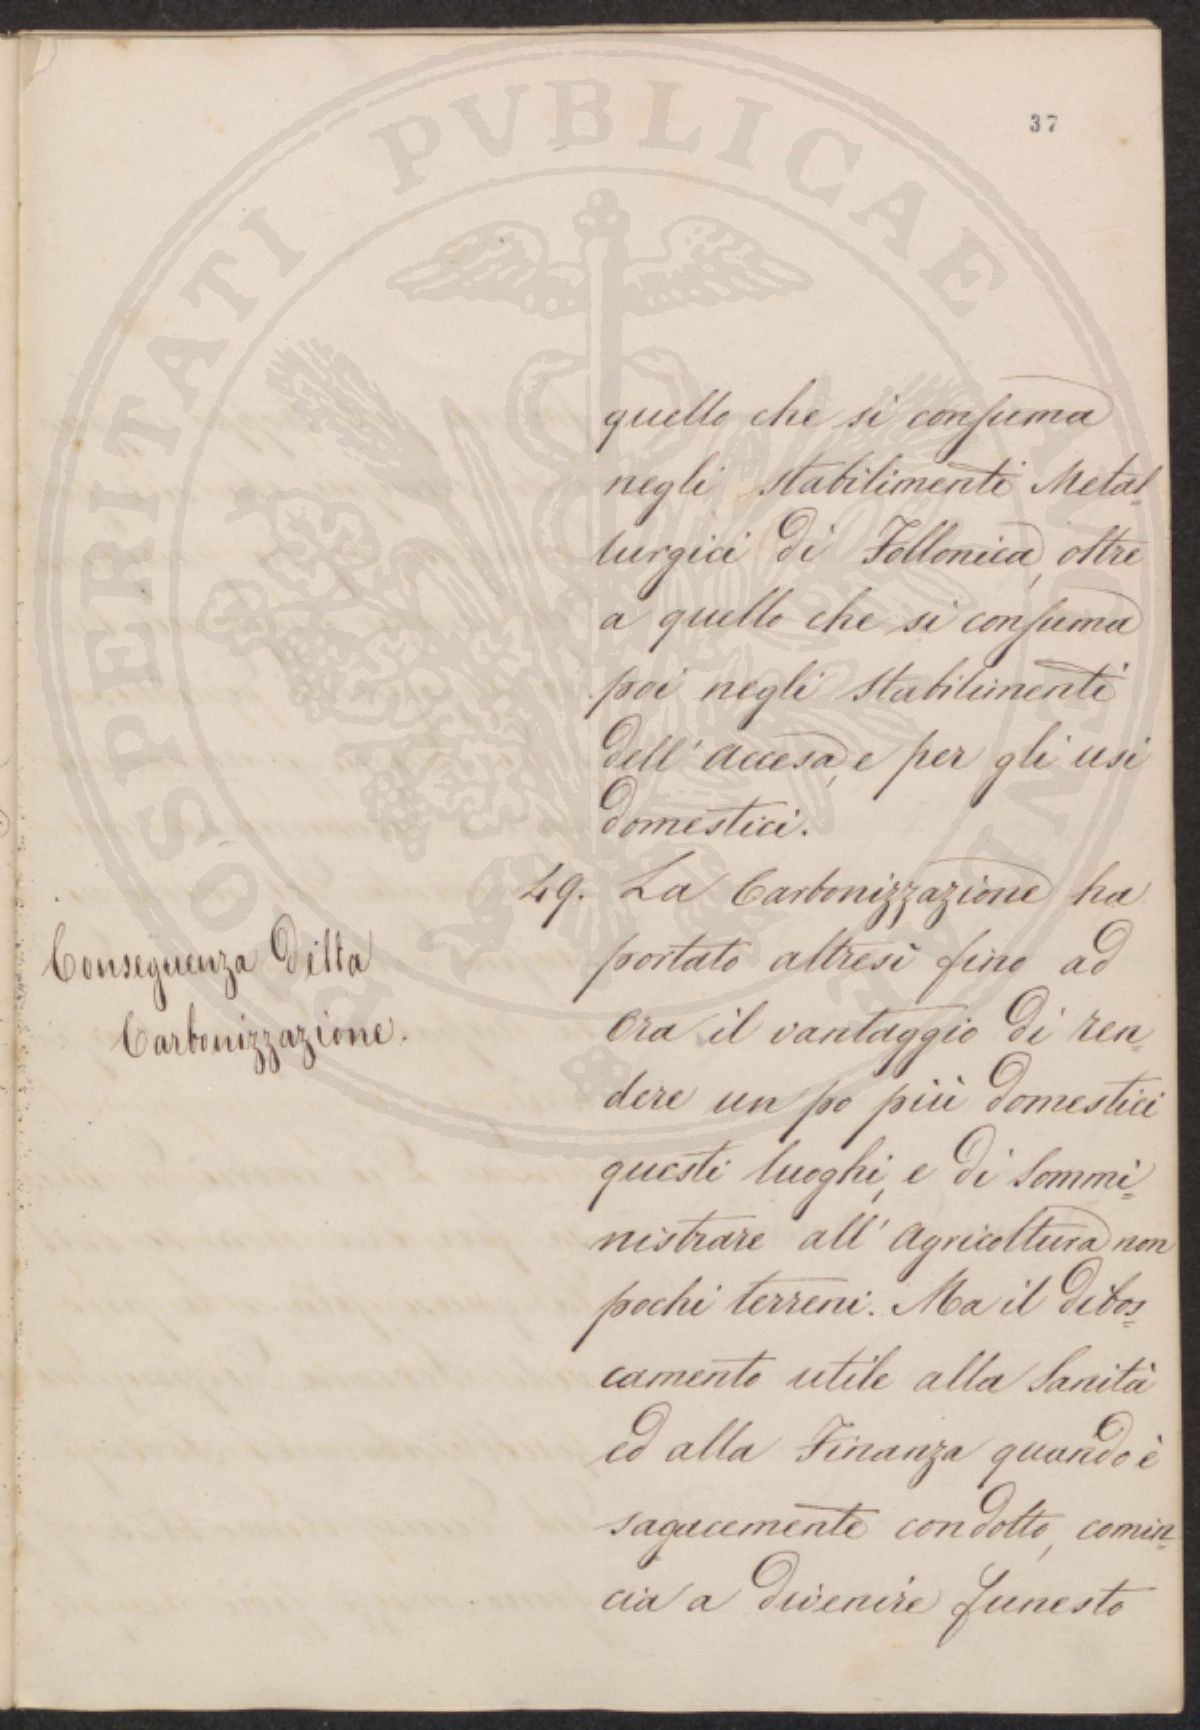 37
quello che si consuma
negli stabilimenti Metal=
lurgici di Follonica, oltre
a quello che si consuma
poi negli stabilimenti
dell'accesa, e per gli usi
domestici.
49. La Carbonizzazione ha
portato altresì fino ad
Conseguenza della
Carbonizzazione.
ora il vantaggio di ren=
dere un po più domestici
questi luoghi, e di sommi=
nistrare all'agricoltura non
pochi terreni. Ma il dibos=
camento utile alla Sanità
ed alla Finanza quando è
sagacemente condotto, comin=
cia a divenire funesto
PROSPERITATI PVBLICAE